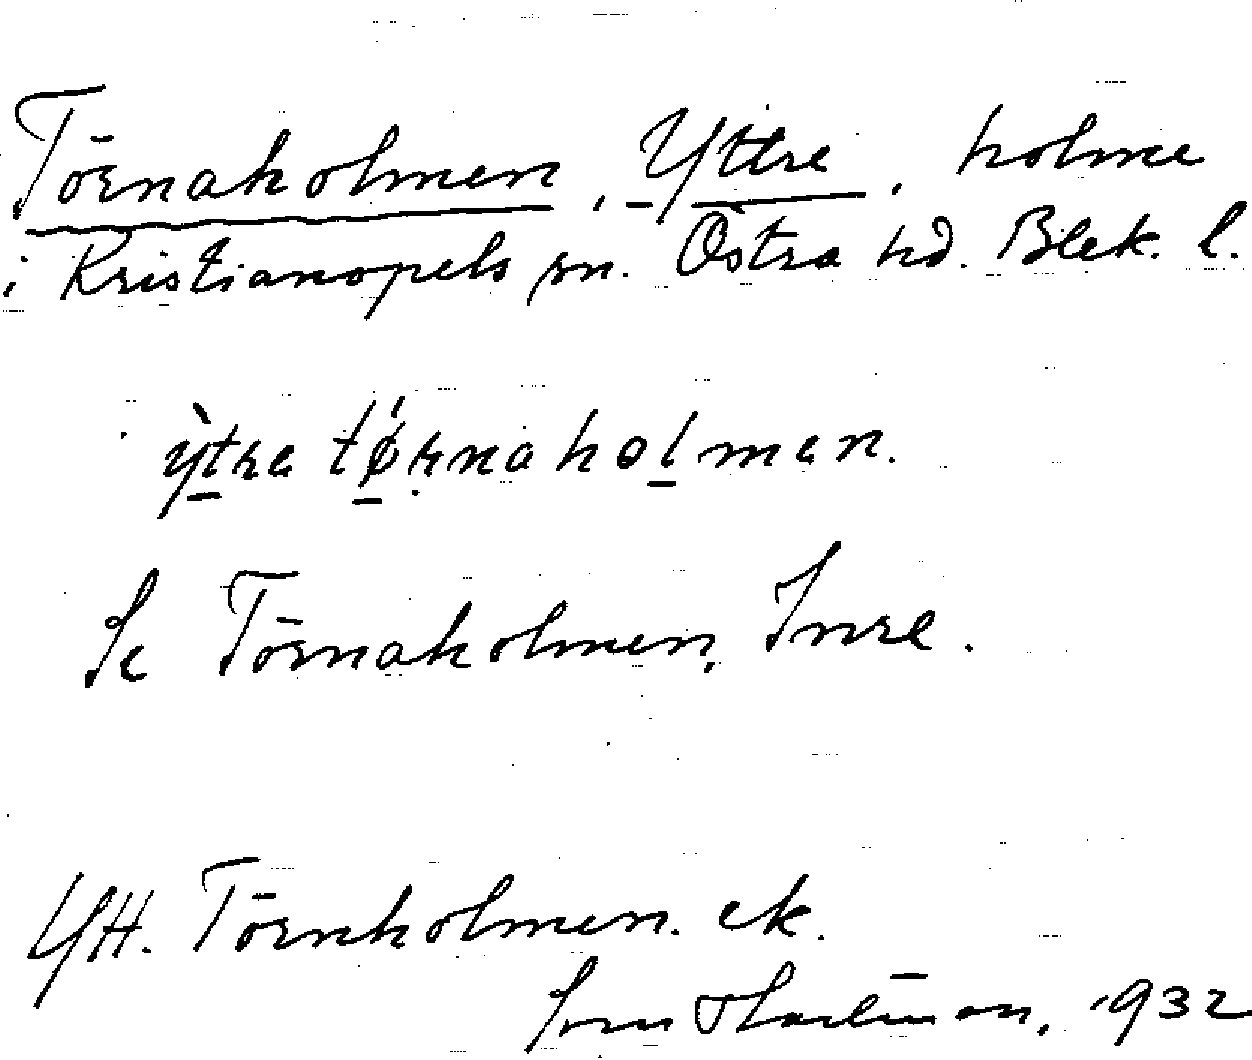 Törnaholmen, Yttre, holme
i Kristianopels sn. Östra hd. Blek. l.
ỳtre tǿrnaholmen.
Se Törnaholmen, Inre.
Ytt. Törnholmen. ek.
Hartman, 1932